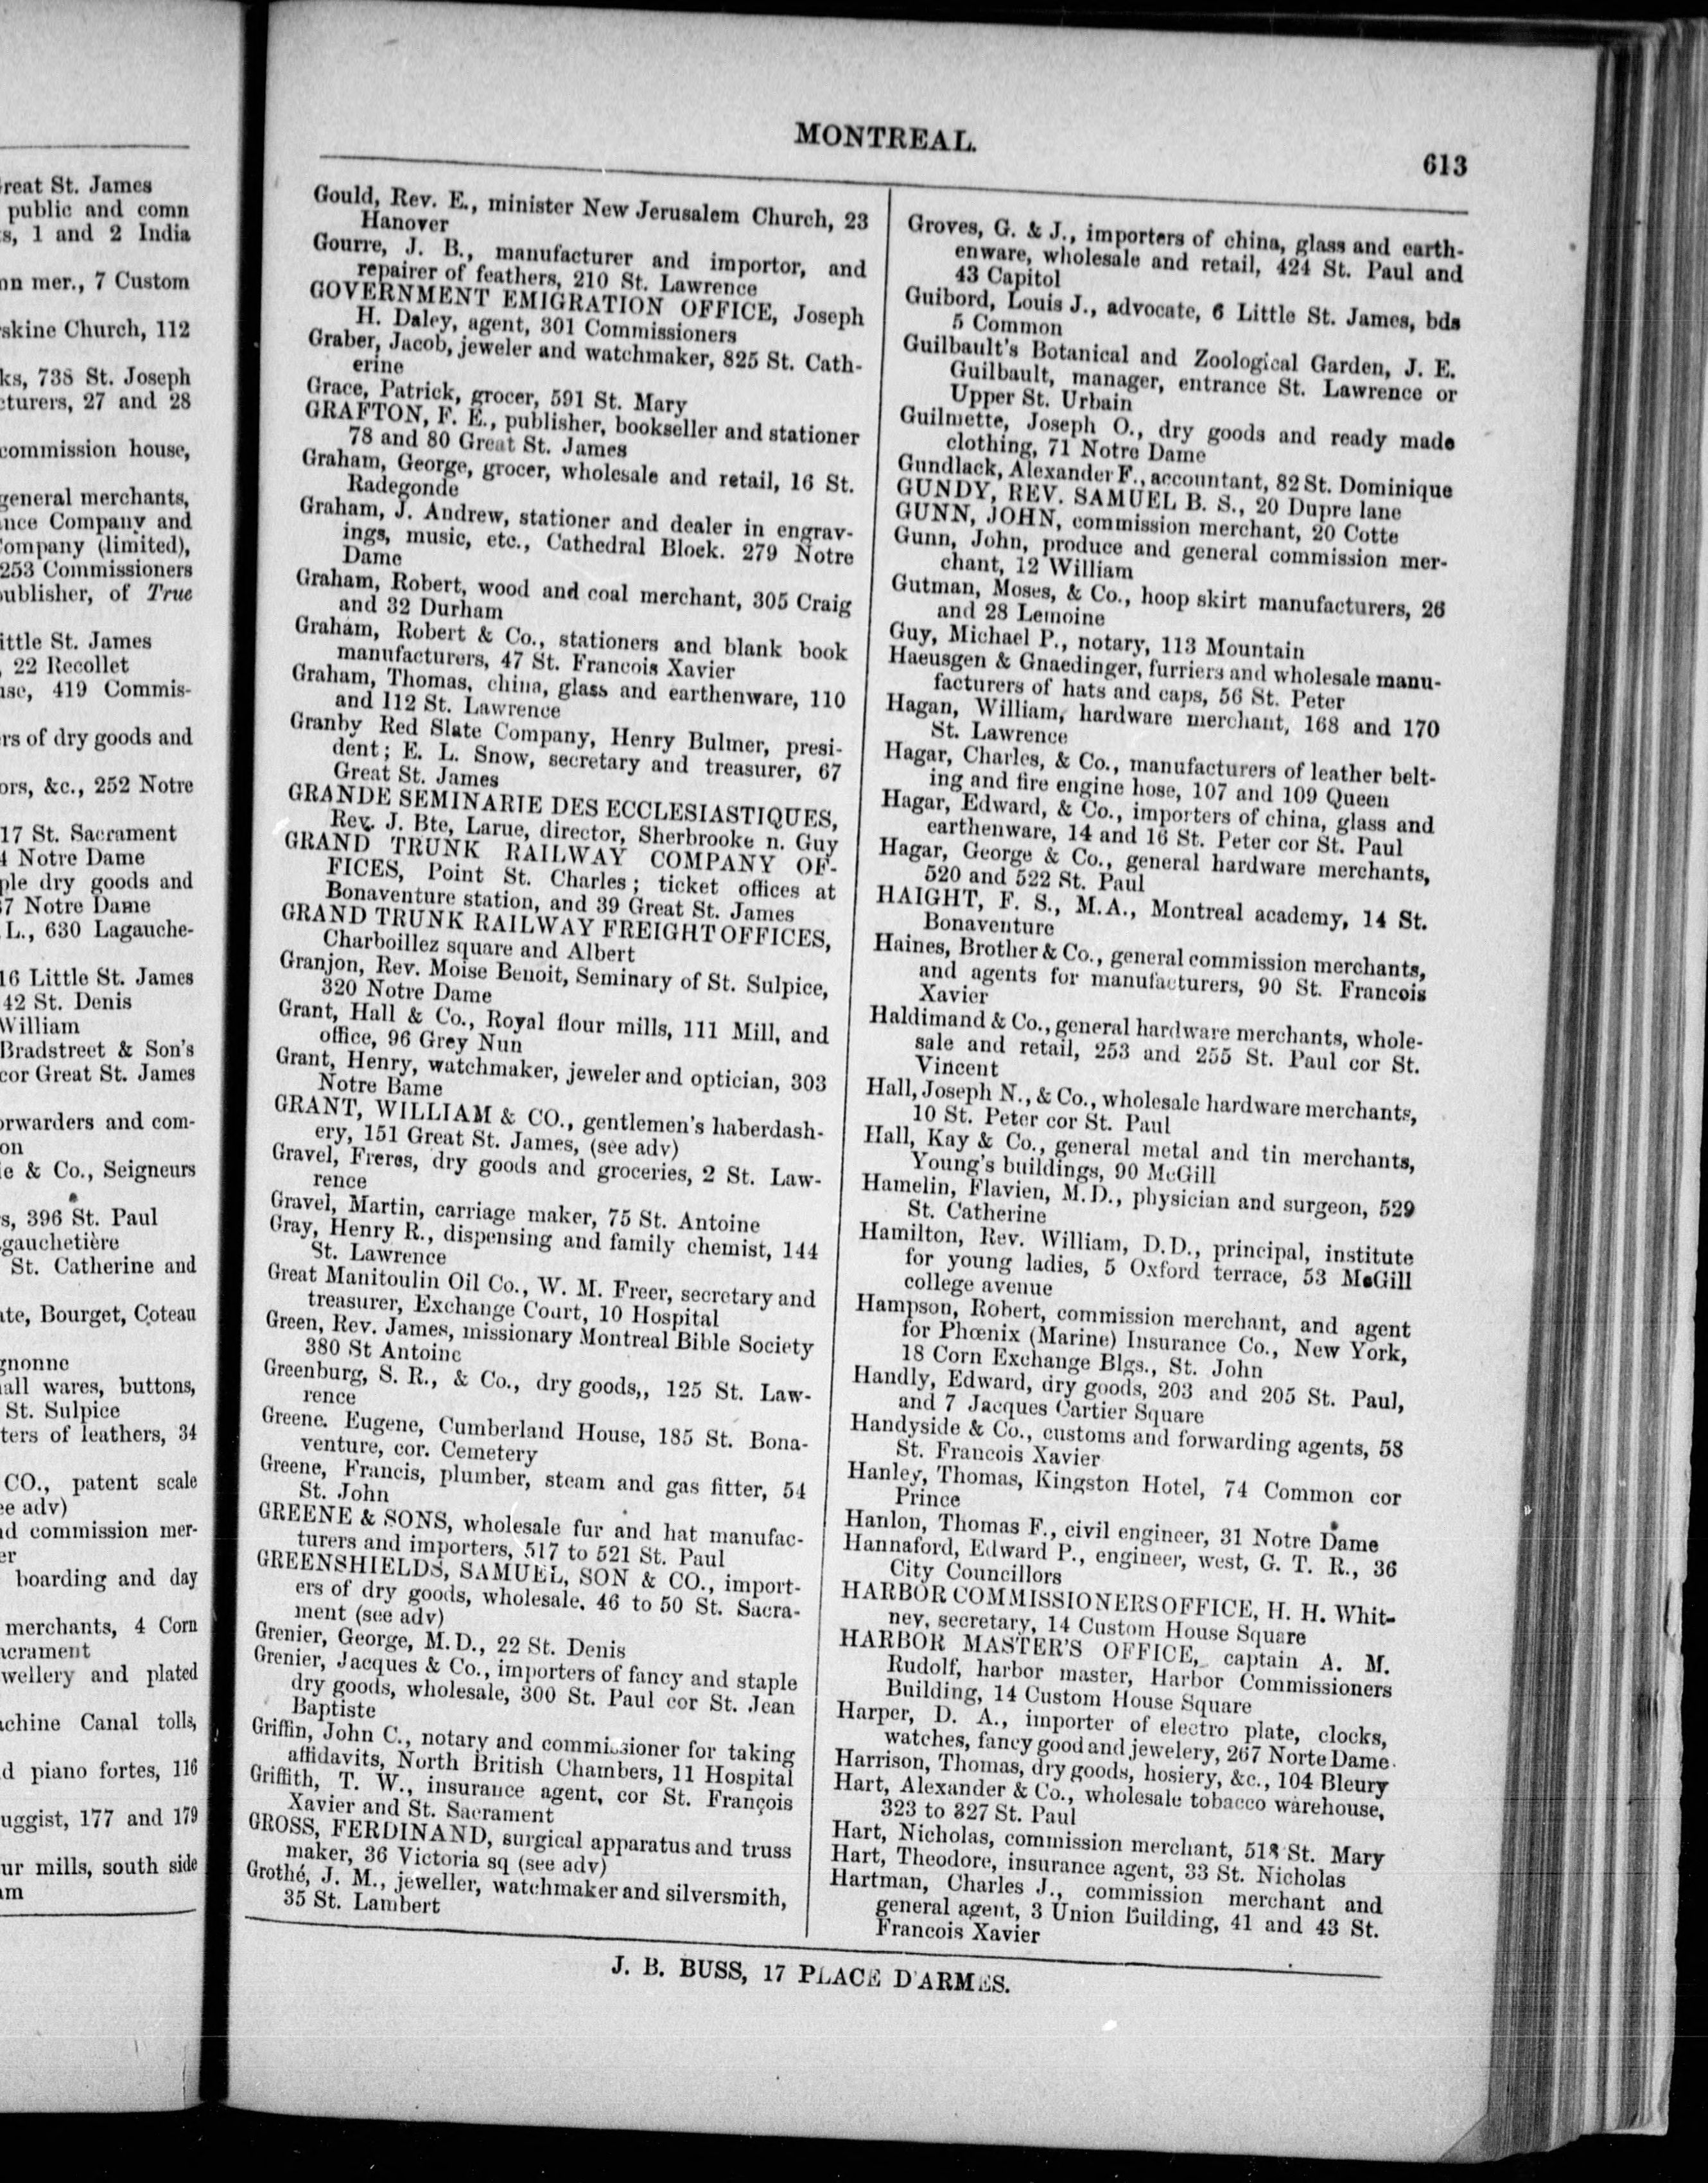 reat St. James
public and comn
s, 1 and 2 India
on mer., 7 Custom
rskine Church, 112
ks, 738 St. Joseph
cturers, 27 and 28
commission house,
general merchants,
ance Company and
Company (limited),
253 Commissioners
publisher, of True
ittle St. James
, 22 Recollet
use, 419 Commis-
rs of dry goods and
ors, &c., 252 Notre
17 St. Sacrament
4 Notre Dame
ple dry goods and
67 Notre Dame
L., 630 Lagauche-
16 Little St. James
42 St. Denis
William
Bradstreet & Son's
cor Great St. James
orwarders and com-
on
ie & Co., Seigneurs
s, 396 St. Paul
gauchetière
St. Catherine and
ate, Bourget, Coteau
gnonne
all wares, buttons,
St. Sulpice
ters of leathers, 34
CO., patent scale
ee adv)
nd commission mer-
er
boarding and day
merchants, 4 Corn
acrament
wellery and plated
achine Canal tolls,
d piano fortes, 116
uggist, 177 and 179
ur mills, south side
am
MONTREAL.
613
Gould, Rev. E., minister New Jerusalem Church, 23
Hanover
Gourre, J. B., manufacturer and importor, and
repairer of feathers, 210 St. Lawrence
GOVERNMENT EMIGRATION OFFICE, Joseph
H. Daley, agent, 301 Commissioners
Graber, Jacob, jeweler and watchmaker, 825 St. Cath-
erine
Grace, Patrick, grocer, 591 St. Mary
GRAFTON, F. E., publisher, bookseller and stationer
78 and 80 Great St. James
Graham, George, grocer, wholesale and retail, 16 St.
Radegonde
Graham, J. Andrew, stationer and dealer in engrav-
ings, music, etc., Cathedral Block. 279 Notre
Dame
Graham, Robert, wood and coal merchant, 305 Craig
and 32 Durham
Graham, Robert & Co., stationers and blank book
manufacturers, 47 St. Francois Xavier
Graham, Thomas, china, glass and earthenware, 110
and 112 St. Lawrence
Granby Red Slate Company, Henry Bulmer, presi-
dent; E. L. Snow, secretary and treasurer, 67
Great St. James
GRANDE SEMINARIE DES ECCLESIASTIQUES,
Rev. J. Bte, Larue, director, Sherbrooke n. Guy
GRAND TRUNK RAILWAY COMPANY OF-
FICES, Point St. Charles; ticket offices at
Bonaventure station, and 39 Great St. James
GRAND TRUNK RAILWAY FREIGHT OFFICES,
Charboillez square and Albert
Granjon, Rev. Moise Benoit, Seminary of St. Sulpice,
320 Notre Dame
Grant, Hall & Co., Royal flour mills, 111 Mill, and
office, 96 Grey Nun
Grant, Henry, watchmaker, jeweler and optician, 303
Notre Bame
GRANT, WILLIAM & CO., gentlemen's haberdash-
ery, 151 Great St. James, (see adv)
Gravel, Freres, dry goods and groceries, 2 St. Law-
rence
Gravel, Martin, carriage maker, 75 St. Antoine
Gray, Henry R., dispensing and family chemist, 144
St. Lawrence
Great Manitoulin Oil Co., W. M. Freer, secretary and
treasurer, Exchange Court, 10 Hospital
Green, Rev. James, missionary Montreal Bible Society
380 St Antoine
Greenburg, S. R., & Co., dry goods,, 125 St. Law-
rence
Greene. Eugene, Cumberland House, 185 St. Bona-
venture, cor. Cemetery
Greene, Francis, plumber, steam and gas fitter, 54
St. John
GREENE & SONS, wholesale fur and hat manufac-
turers and importers, 517 to 521 St. Paul
GREENSHIELDS, SAMUEL, SON & CO., import-
ers of dry goods, wholesale. 46 to 50 St. Sacra-
ment (see adv)
Grenier, George, M.D., 22 St. Denis
Grenier, Jacques & Co., importers of fancy and staple
dry goods, wholesale, 300 St. Paul cor St. Jean
Baptiste
Griffin, John C., notary and commissioner for taking
affidavits, North British Chambers, 11 Hospital
Griffith, T. W., insurance agent, cor St. François
Xavier and St. Sacrament
GROSS, FERDINAND, surgical apparatus and truss
maker, 36 Victoria sq (see adv)
Grothé, J. M., jeweller, watchmaker and silversmith,
35 St. Lambert
Groves, G. & J., importers of china, glass and earth-
enware, wholesale and retail, 424 St. Paul and
43 Capitol
Guibord, Louis J., advocate, 6 Little St. James, bds
5 Common
Guilbault's Botanical and Zoological Garden, J. E.
Guilbault, manager, entrance St. Lawrence or
Upper St. Urbain
Guilmette, Joseph O., dry goods and ready made
clothing, 71 Notre Dame
Gundlack, Alexander F., accountant, 82 St. Dominique
GUNDY, REV. SAMUEL B. S., 20 Dupre lane
GUNN, JOHN, commission merchant, 20 Cotte
Gunn, John, produce and general commission mer-
chant, 12 William
Gutman, Moses, & Co., hoop skirt manufacturers, 26
and 28 Lemoine
Guy, Michael P., notary, 113 Mountain
Haeusgen & Gnaedinger, furriers and wholesale manu-
facturers of hats and caps, 56 St. Peter
Hagan, William, hardware merchant, 168 and 170
St. Lawrence
Hagar, Charles, & Co., manufacturers of leather belt-
ing and fire engine hose, 107 and 109 Queen
Hagar, Edward, & Co., importers of china, glass and
earthenware, 14 and 16 St. Peter cor St. Paul
Hagar, George & Co., general hardware merchants,
520 and 522 St. Paul
HAIGHT, F. S., M.A., Montreal academy, 14 St.
Bonaventure
Haines, Brother & Co., general commission merchants,
and agents for manufacturers, 90 St. Francois
Xavier
Haldimand & Co., general hardware merchants, whole-
sale and retail, 253 and 255 St. Paul cor St.
Vincent
Hall, Joseph N., & Co., wholesale hardware merchants,
10 St. Peter cor St. Paul
Hall, Kay & Co., general metal and tin merchants,
Young's buildings, 90 McGill
Hamelin, Flavien, M.D., physician and surgeon, 529
St. Catherine
Hamilton, Rev. William, D.D., principal, institute
for young ladies, 5 Oxford terrace, 53 McGill
college avenue
Hampson, Robert, commission merchant, and agent
for Phœnix (Marine) Insurance Co., New York,
18 Corn Exchange Blgs., St. John
Handly, Edward, dry goods, 203 and 205 St. Paul,
and 7 Jacques Cartier Square
Handyside & Co., customs and forwarding agents, 58
St. Francois Xavier
Hanley, Thomas, Kingston Hotel, 74 Common cor
Prince
Hanlon, Thomas F., civil engineer, 31 Notre Dame
Hannaford, Edward P., engineer, west, G. T. R., 36
City Councillors
HARBOR COMMISSIONERS OFFICE, H. H. Whit-
ney, secretary, 14 Custom House Square
HARBOR MASTER'S OFFICE, captain A. M.
Rudolf, harbor master, Harbor Commissioners
Building, 14 Custom House Square
Harper, D. A., importer of electro plate, clocks,
watches, fancy good and jewelery, 267 Norte Dame.
Harrison, Thomas, dry goods, hosiery, &c., 104 Bleury
Hart, Alexander & Co., wholesale tobacco warehouse,
323 to 327 St. Paul
Hart, Nicholas, commission merchant, 518 St. Mary
Hart, Theodore, insurance agent, 33 St. Nicholas
Hartman, Charles J., commission merchant and
general agent, 3 Union Building, 41 and 43 St.
Francois Xavier
J. B. BUSS, 17 PLACE D'ARMES.